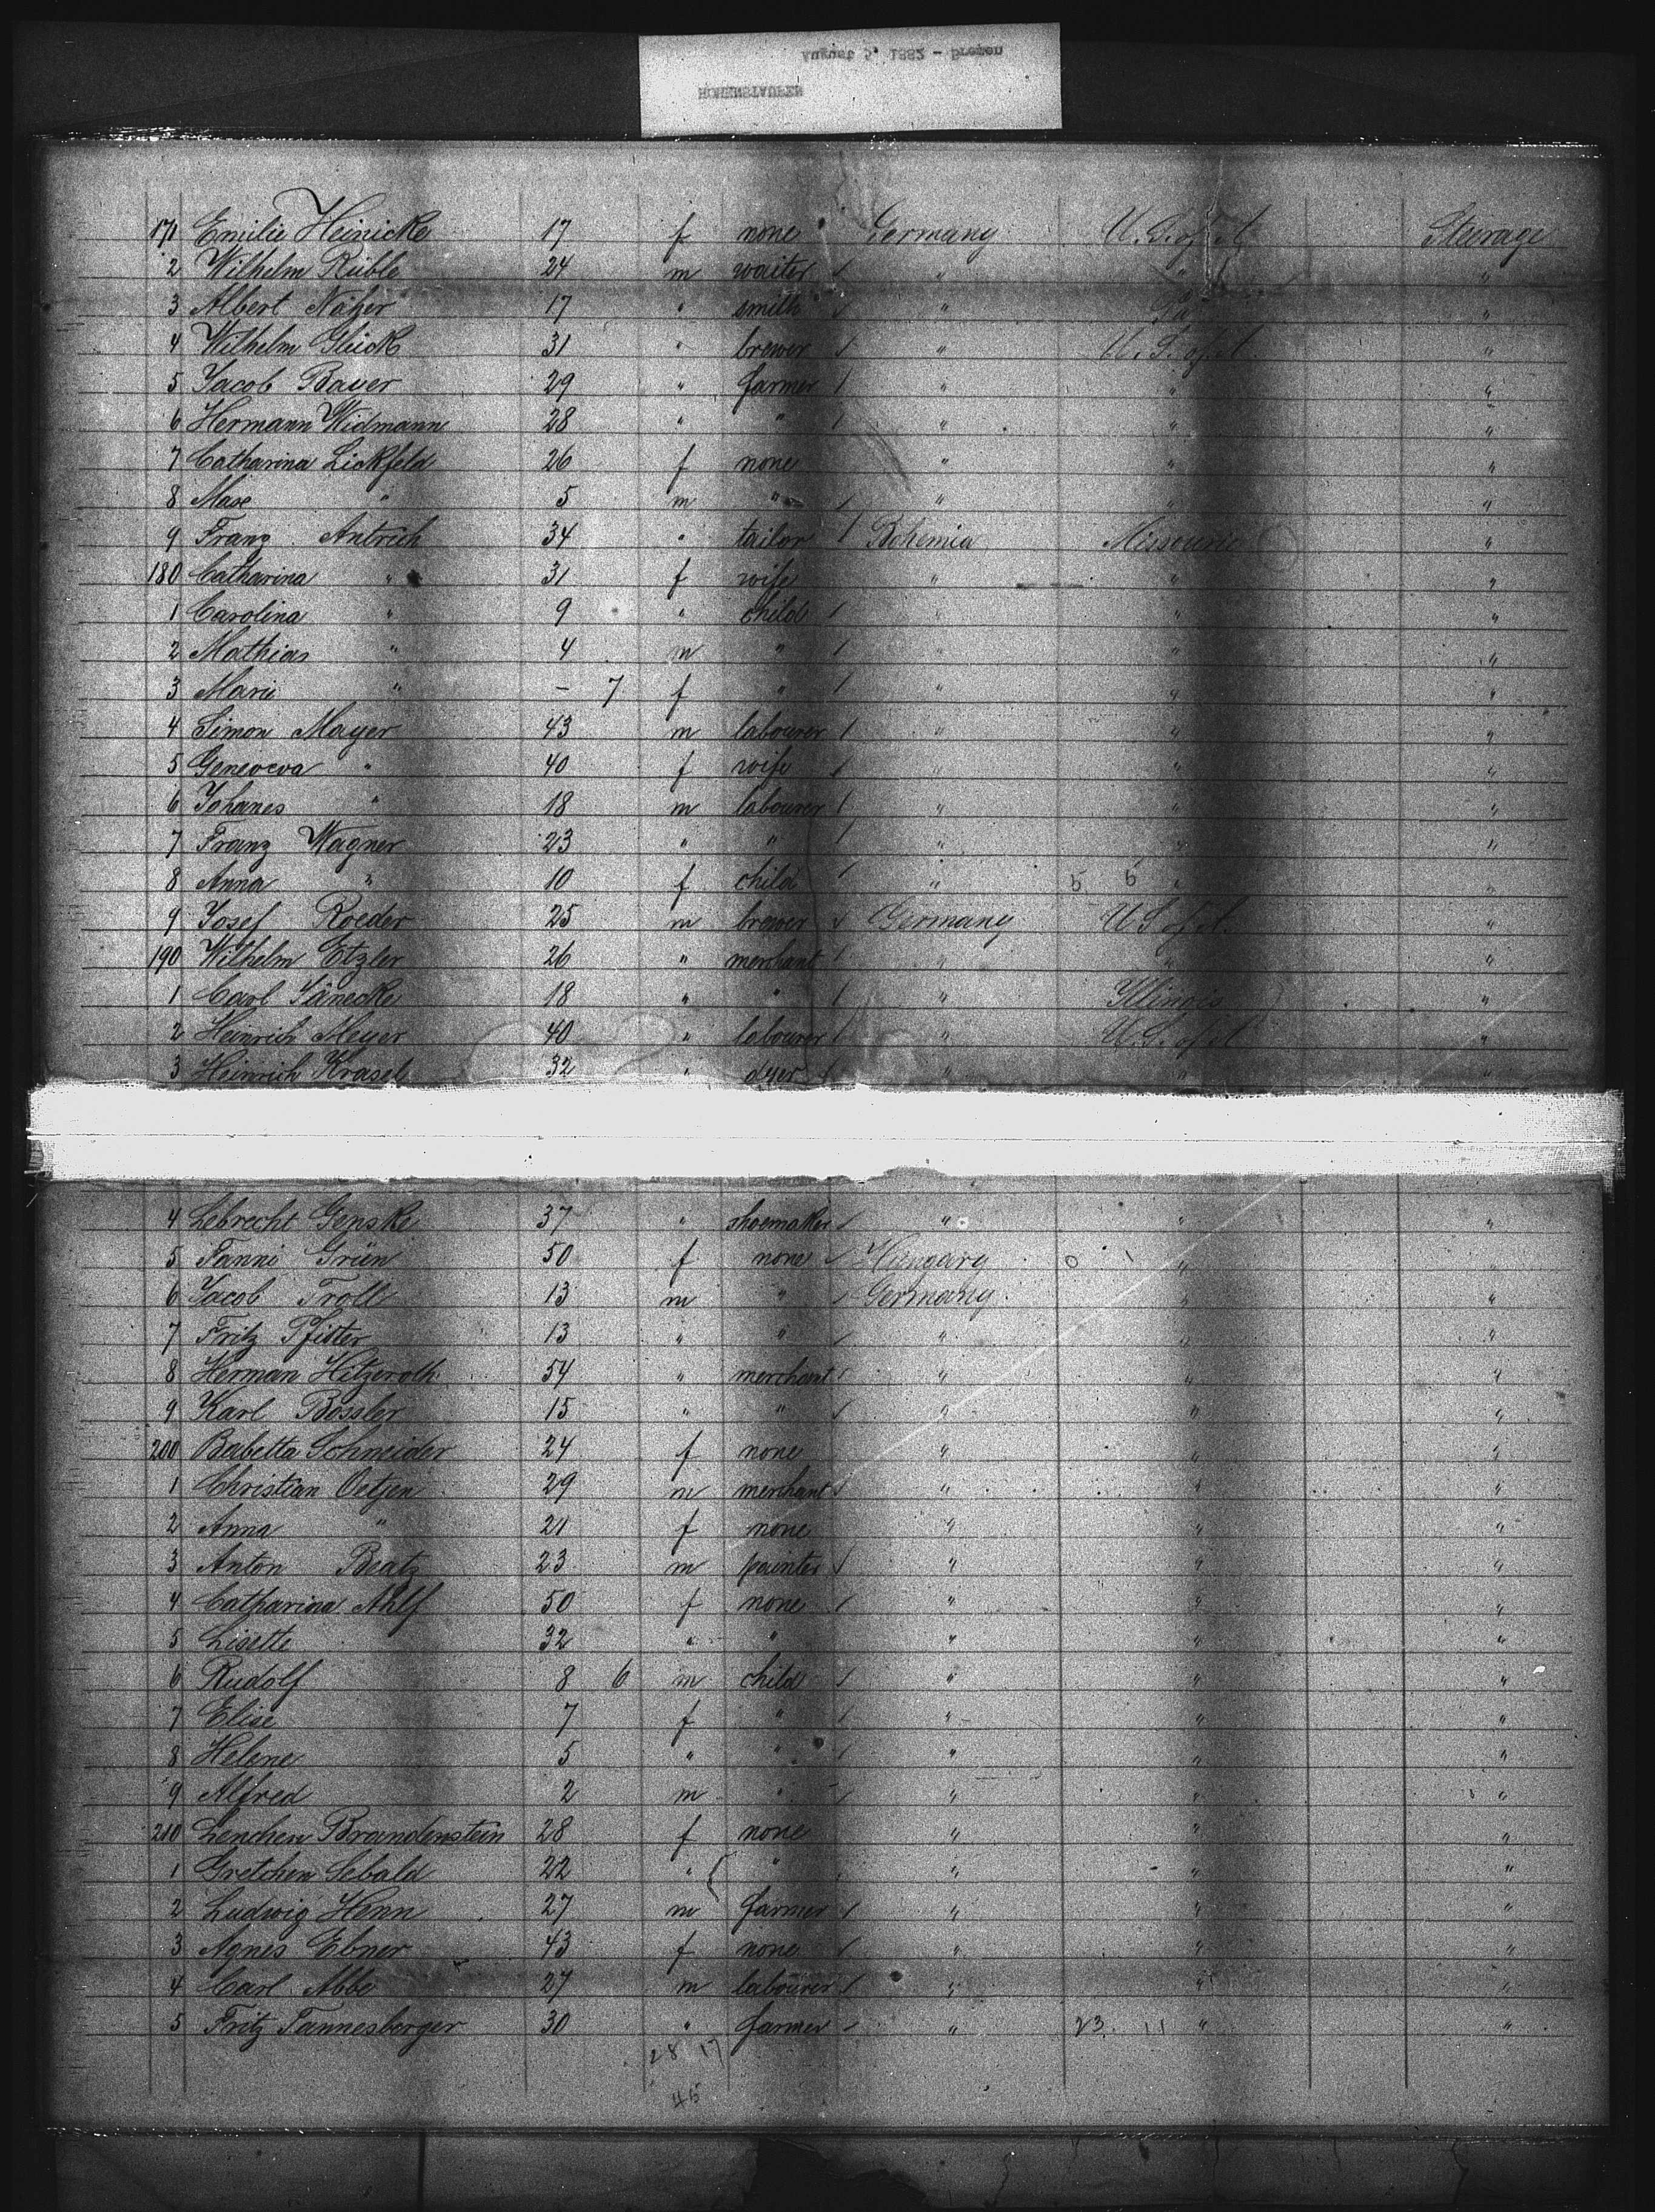 August 5, 1882 - Bremen
HOHENSTAUFEN
171 Emilie Heinicke 17 f none Germany U.S. of A. Steerage
2 Wilhelm Rüble 24 m waiter " " "
3 Albert Näher 17 " smith " "
4 Wilhelm Glück 31 " brewer " U.S. of A. "
5 Jacob Bauer 29 " farmer " " "
6 Hermann Widmann 28 " " " " "
7 Catharina Lickfeld 26 f none " " "
8 Max " 5 m " " " "
9 Franz Antrich 34 " tailor Bohemia Missouri "
180 Catharina " 31 f wife " " "
1 Carolina " 9 " child " "
2 Mathias " 4 m " " "
3 Marie " - 7 f " " " "
4 Simon Mayer 43 m labourer " " "
5 Genoveva " 40 f wife " " "
6 Johanes " 18 m labourer " " "
7 Franz Wagner 23 " " " " "
8 Anna " 10 f child " 5 6 " "
9 Josef Roeder 25 m brewer Germany U.S. of A. "
190 Wilhelm Etzler 26 " merchant " " "
1 Carl Jänecke 18 " " " Illinois "
2 Heinrich Meyer 40 " labourer " U.S. of A. "
3 Heinrich Krasel 32 " dyer " " "
4 Lebrecht Genske 37 " shoemaker " " "
5 Fanni Grün 50 f none Hungary 0 1 " "
6 Jacob Troll 13 m " Germany " "
7 Fritz Pfister 13 " " " " "
8 Herman Hitzeroth 54 " merchant " " "
9 Karl Bossler 15 " " " " "
200 Babetta Schneider 24 f none " " "
1 Christian Oetjen 29 m merchant " " "
2 Anna " 21 f none " " "
3 Anton Beatz 23 m painter " " "
4 Catharina Ahlf 50 f none " " "
5 Lisette 32 " " " " "
6 Rudolf 8 6 m child " " "
7 Elise 7 f " " " "
8 Helene 5 " " " " "
9 Alfred 2 m " " " "
210 Lenchen Brandenstein 28 f none " " "
1 Gretchen Sebald 22 " " " " "
2 Ludwig Henn 27 m farmer " " "
3 Agnes Ebner 43 f none " " "
4 Carl Abbe 27 m labourer " " "
5 Fritz Tannesberger 30 " farmer " 23 11 " "
28 17
45